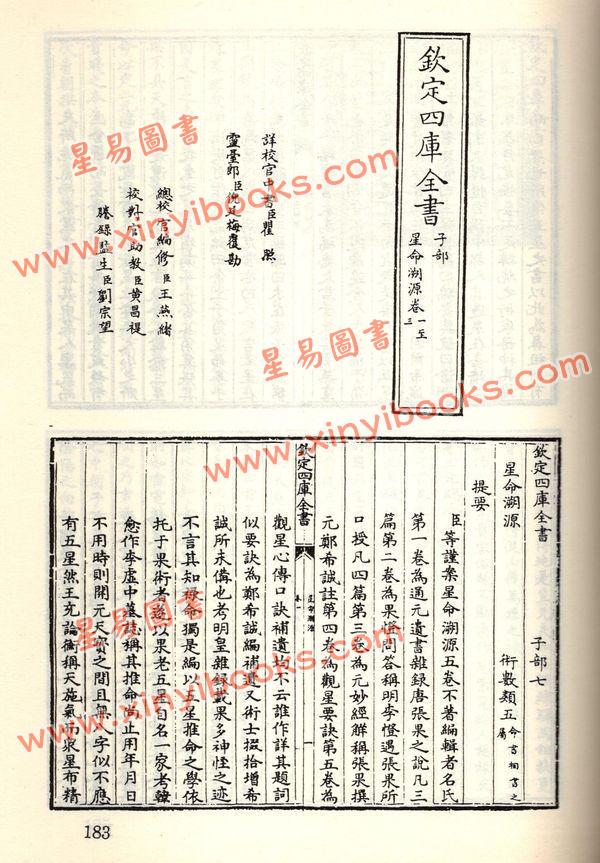 欽定四庫全書
子部
星命溯源卷一至三
詳校官中書臣瞿
靈臺郎臣倪廷梅覆勘
總校官編修臣王燕緒
校對官助教臣黄昌禔
謄錄監生臣劉宗望
欽定四庫全書 子部七
星命溯源 術數類五 命書相書之屬
提要
臣等謹案星命溯源五卷不著編輯者名氏
第一卷為通元遺書雜錄唐張果之說凡三
篇第二卷為果老問答稱明李憕遇張果所
口授凡四篇第三卷為元妙經解稱張果撰
元鄭希誠註第四卷為觀星要訣第五卷為
欽定四庫全書
星命溯源
一
觀星心傳口訣補遺均不云誰作詳其題詞
似要訣為鄭希誠編補遺又術士掇拾增希
誠所未備也考明皇雜錄載果多神怪之迹
不言其知祿命獨是編以五星推命之學依
托于果術者遂以果老五星自名一家考韓
愈作李虛中墓誌稱其推命尚止用年月日
不用時則開元天寶之間且無八字似不應
有五星然王充論衡稱天施氣而衆星布精
183
星易圖書
www.xinyibooks.com
星易圖書
www.xinyibooks.com
星易圖書
www.xinyibooks.com
星易圖書
www.xinyibooks.com